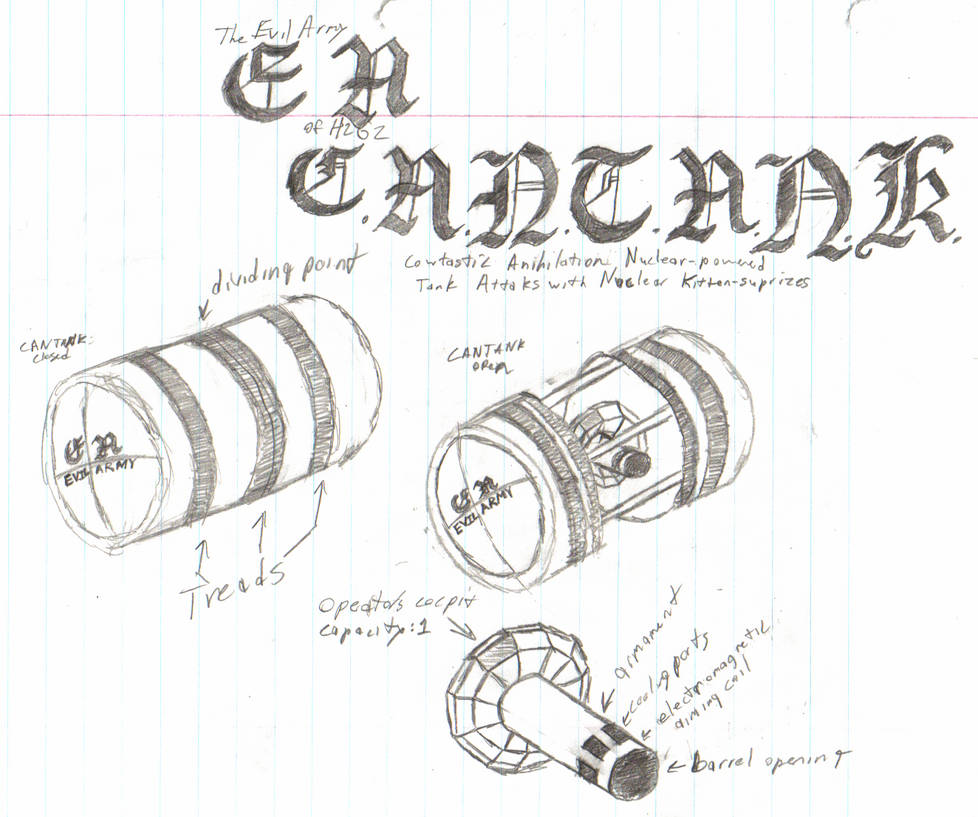 The Evil Army
E A
of H262
C.A.N.T.A.N.K.
Cowtastic Anihilation Nuclear-powered
Tank Attaks with Nuclear Kitten-suprizes
dividing point
CANTANK:
closed
E A
EVIL ARMY
Treads
CANTANK
open
E A
EVIL ARMY
Operators cocpit
capacity:1
armament
cooling ports
electromagnetic
aiming coil
barrel opening